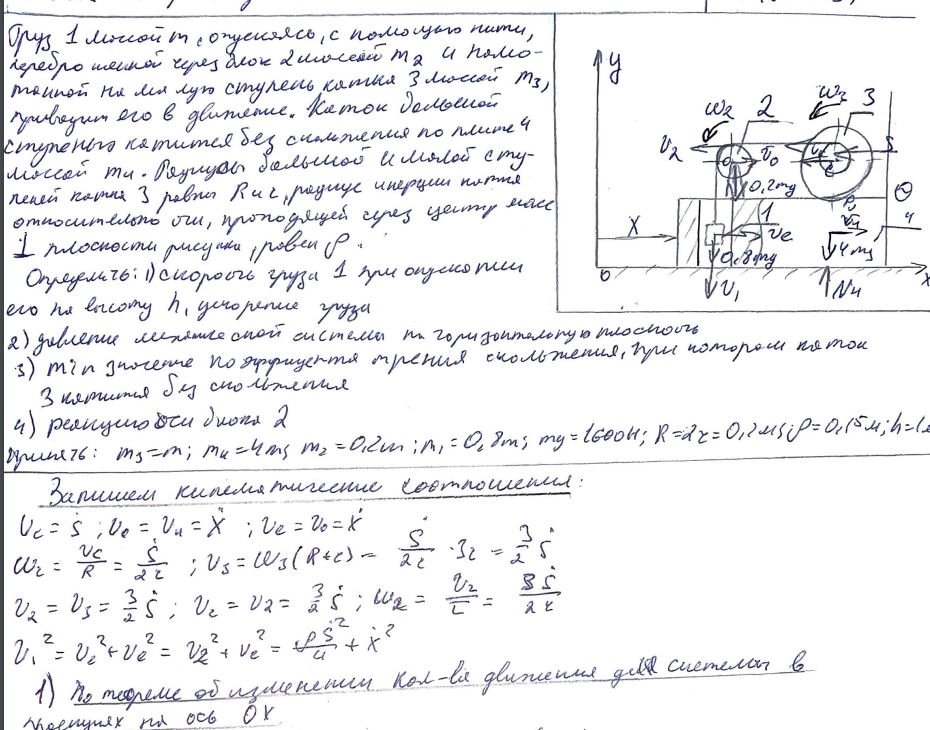 Груз 1 массой m, опускаясь, с помощью нити,
переброшенной через блок 2 массой m₂ и намо-
танной на малую ступень катка 3 массой m₃,
приводит его в движение. Каток большой
ступенью катится без скольжения по плите 4
массой m₄. Радиусы большой и малой сту-
пеней катка 3 равны R и r, радиус инерции катка
относительно оси, проходящей через центр масс
⊥ плоскости рисунка, равен ρ.
Определить: 1) скорость груза 1 при опускании
его на высоту h, ускорение груза
2) давление механической системы на горизонтальную плоскость
3) min значение коэффициента трения скольжения, при котором каток
3 катится без скольжения
4) реакцию оси блока 2
Принять: m₃=m; m₄=4m; m₂=0,2m; m₁=0,8m; mg=1600Н; R=2r=0,2м; ρ=0,15м; h=1
y
ω₂ 2 ω₃ 3
v₂ v₀ C S
0,2mg
X 1 vₑ 4
0,8mg 4mg
0 v₁ N₄ x
Запишем кинематические соотношения:
v_C = ṡ ; v₀ = v₄ = ẋ ; vₑ = v₀ = ẋ
ω₂ = v_C/R = ṡ/2r ; v₃ = ω₃(R+r) = ṡ/2r · 3r = 3/2 ṡ
v₂ = v₃ = 3/2 ṡ ; v_r = v₂ = 3/2 ṡ ; ω₂ = v₂/r = 3ṡ/2r
v₁² = v_r² + vₑ² = v₂² + vₑ² = 9ṡ²/4 + ẋ²
1) По теореме об изменении кол-ва движения для системы в
проекциях на ось OX